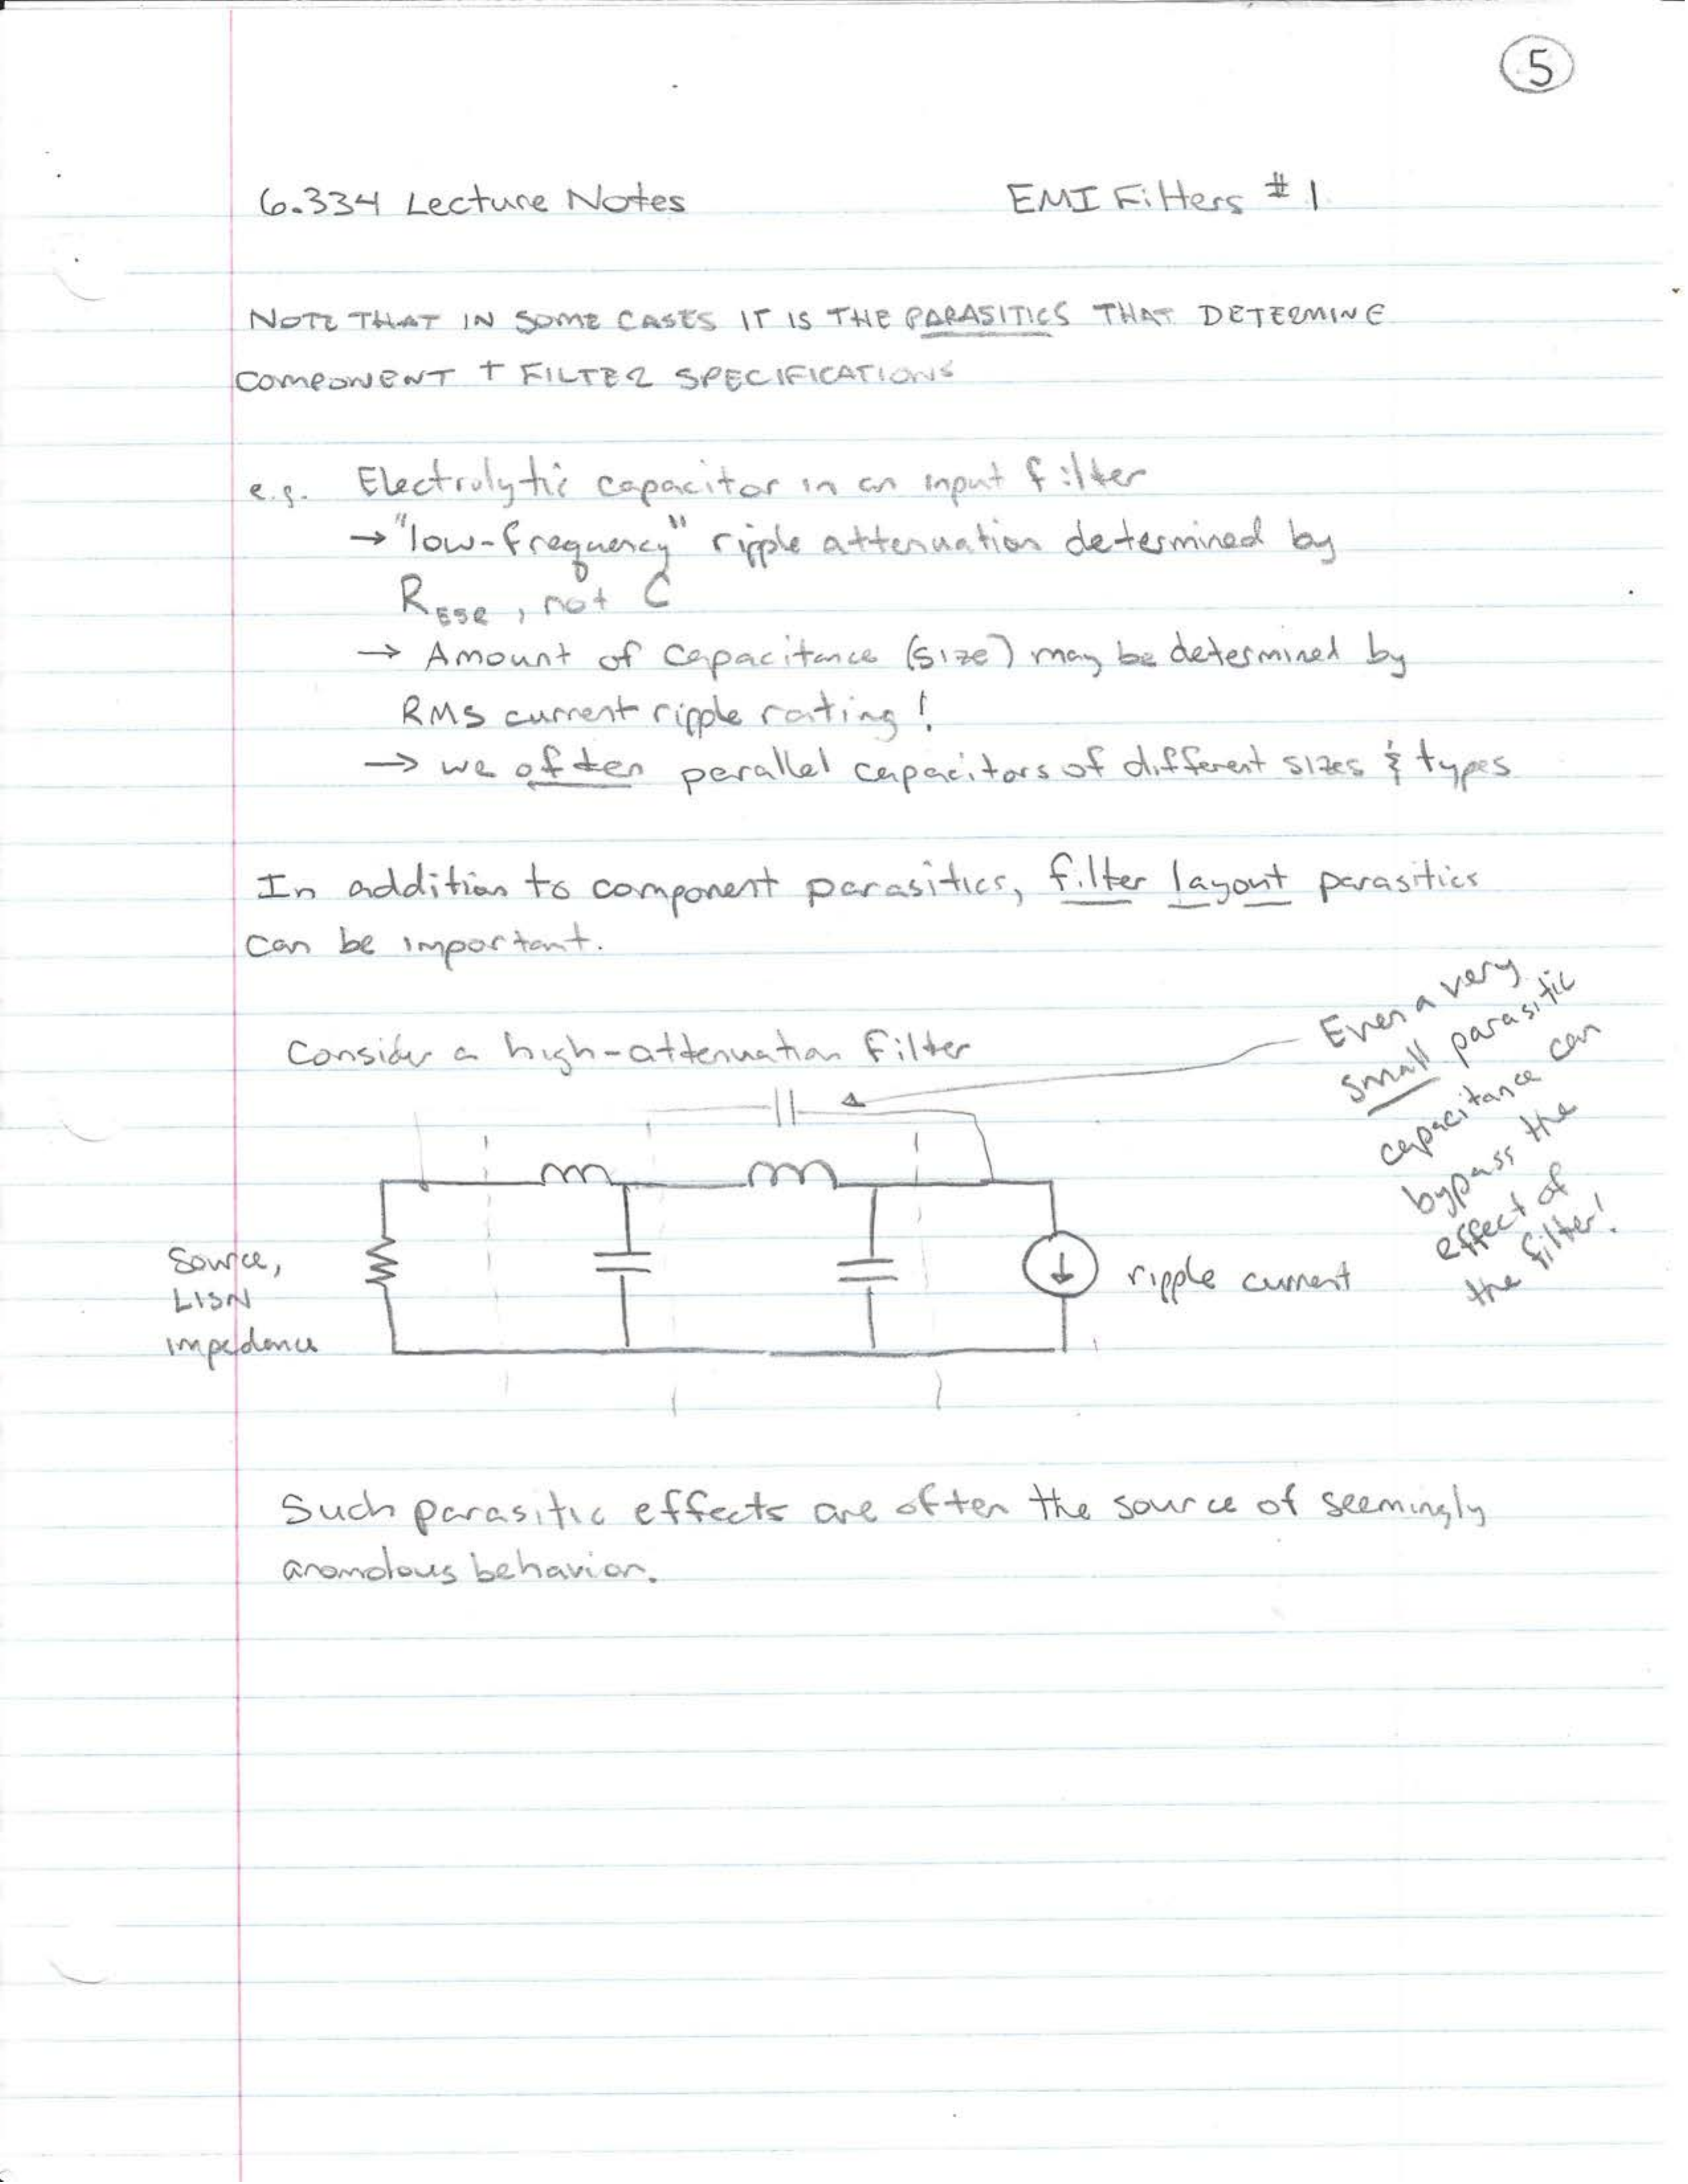 5
6.334 Lecture Notes EMI Filters # 1
NOTE THAT IN SOME CASES IT IS THE PARASITICS THAT DETERMINE
COMPONENT + FILTER SPECIFICATIONS
e.g. Electrolytic capacitor in an input filter
→ "low-frequency" ripple attenuation determined by
R_ESR, not C
→ Amount of capacitance (size) may be determined by
RMS current ripple rating!
→ we often parallel capacitors of different sizes & types
In addition to component parasitics, filter layout parasitics
can be important.
Consider a high-attenuation filter
Even a very
small parasitic
capacitance can
bypass the
effect of
the filter!
Source,
LISN
impedance
ripple current
Such parasitic effects are often the source of seemingly
anomolous behavior.